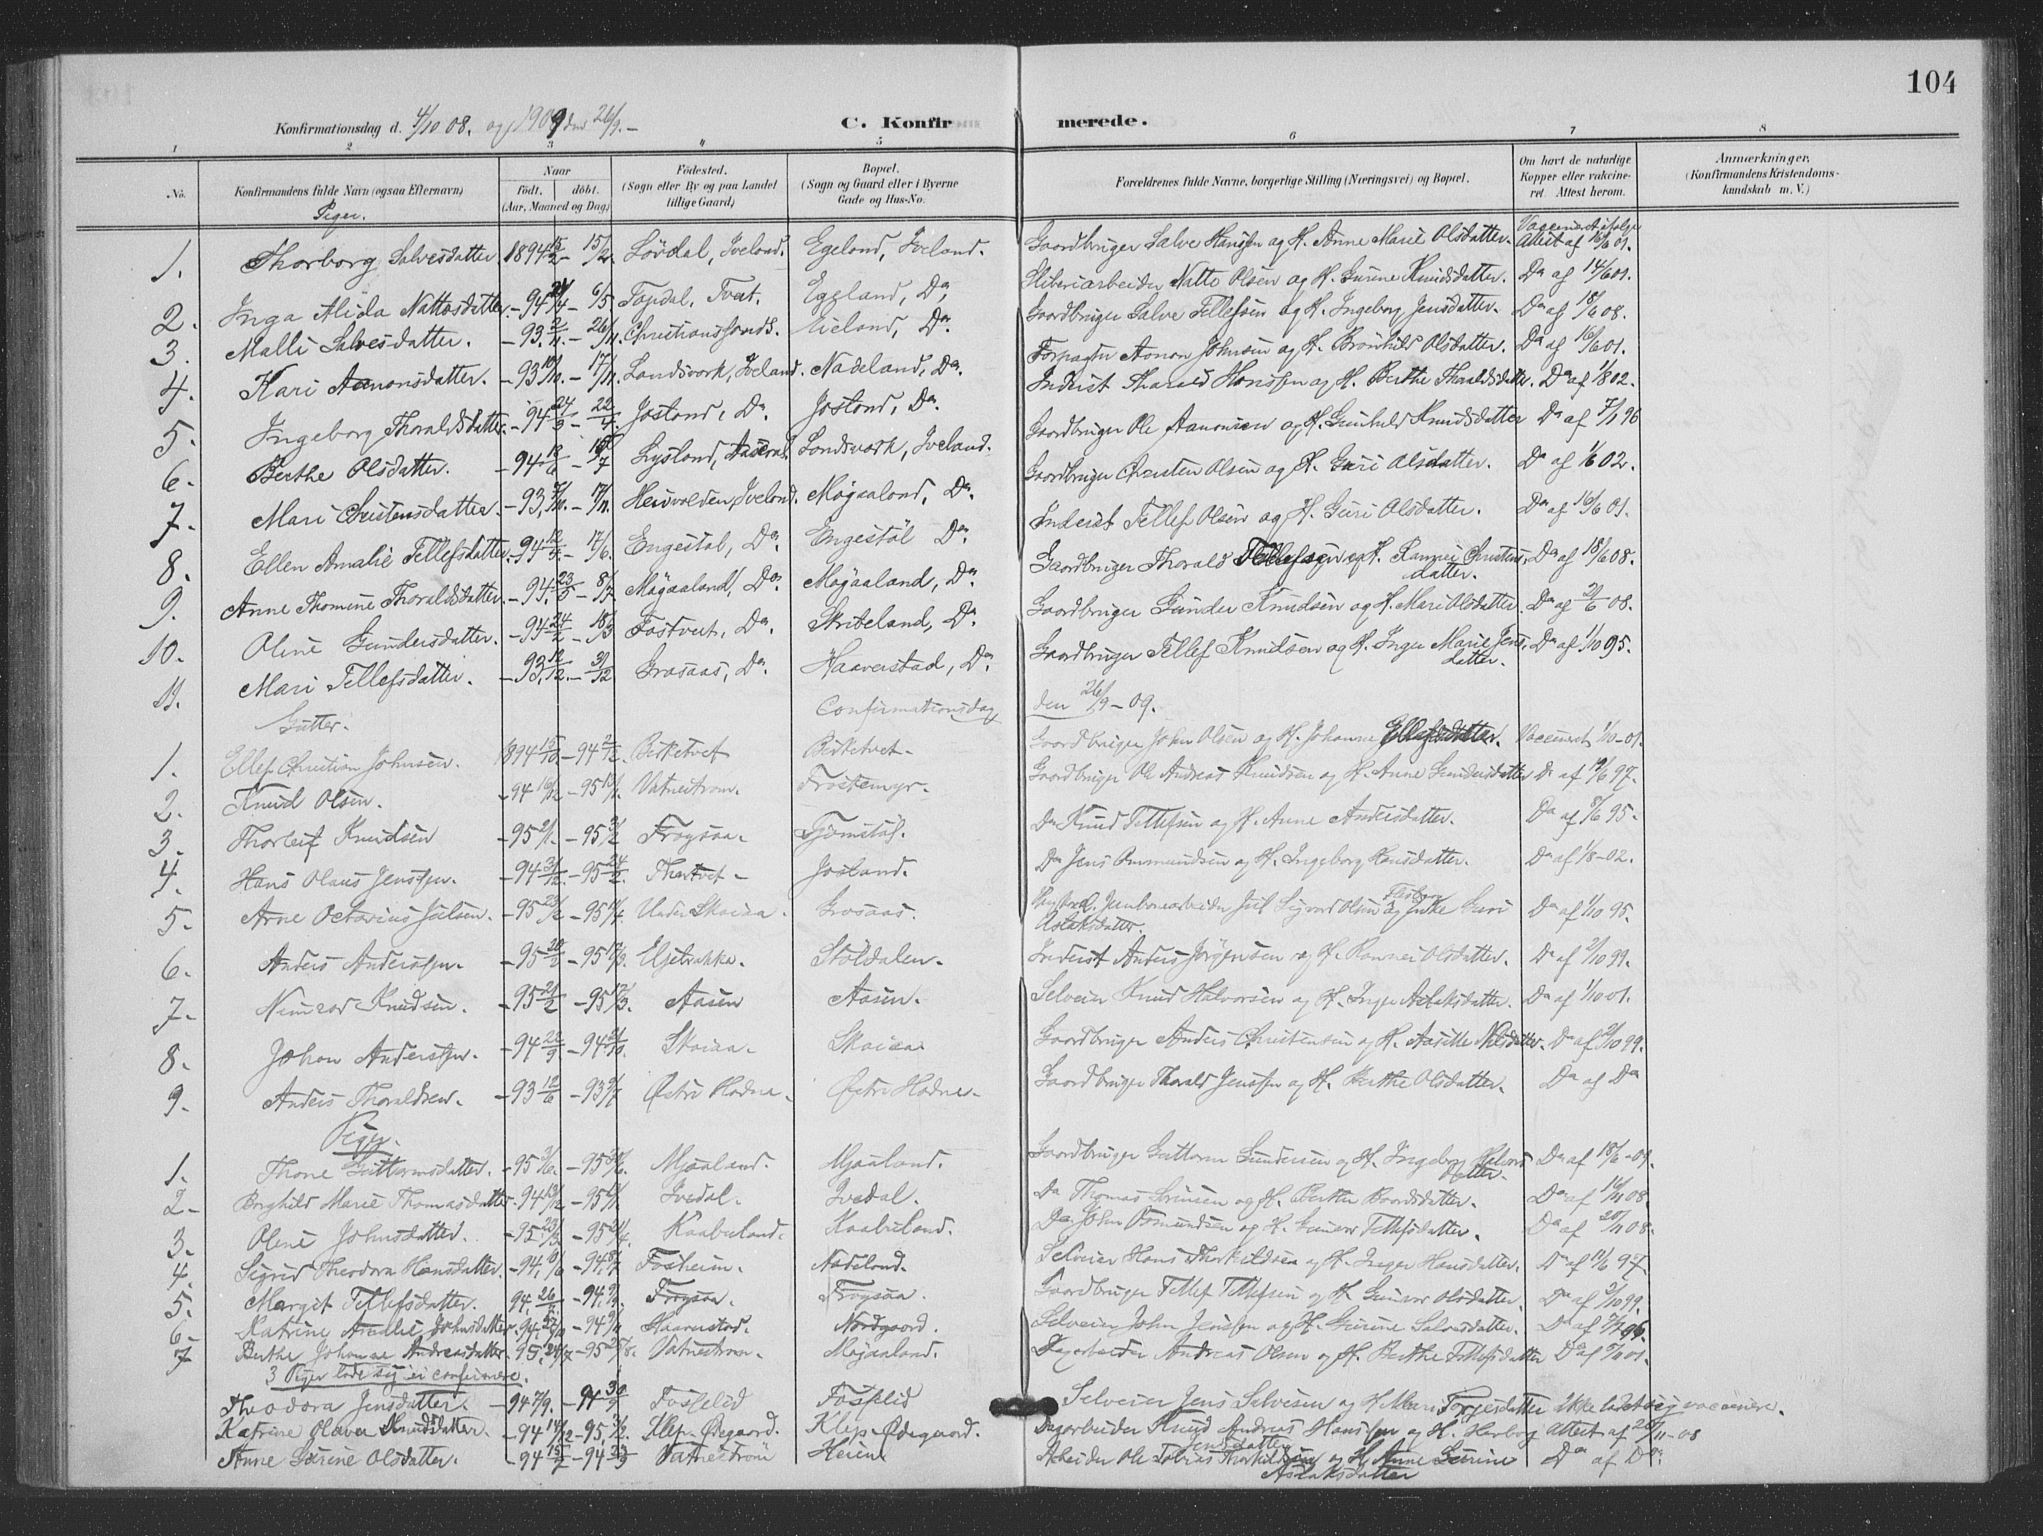 104
Konfirmationsdag d. 4/10 08. og 1909 den 26/9. –
C. Konfirmerede.
1 2 3 4 5 6 7 8
No. Konfirmandens fulde Navn (ogsaa Efternavn) Naar født, døbt. (Aar, Maaned og Dag) Födested. (Sogn eller By og paa Landet tillige Gaard) Bopæl. (Sogn og Gaard eller i Byerne Gade og Hus-No. Forældrenes fulde Navne, borgerlige Stilling (Næringsvei) og Bopæl. Om havt de naturlige Kopper eller vaccineret. Attest herom. Anmærkninger. (Konfirmandens Kristendomskundskab m. V.)
Piger.
1. Thorborg Salvesdatter. 1894 15/2 – 15/2. Lövdal, Iveland. Egeland, Iveland. Gaardbruger Salve Hansen og H. Anne Marie Olsdatter. Vaccineret ifølge Attest af 16/6 01.
2. Inga Alida Nattesdatter. – 94 – 6/5 Topdal, Tveit. Egeland, Do. Sliberiarbeider Natte Olsen og H. Gurine Knudsdatter. Do af 14/6 01.
3. Malli Salvesdatter. – 93 2/11. – 26/11. Christianssands. Eieland, Do. Gaardbruger Salve Tellefsen og H. Ingeborg Jensdatter. Do af 18/6 08.
4. Kari Aanonsdatter. – 93 10/10. – 17/11. Landsverk, Iveland. Nadeland, Do. Forpagter Aanon Johnsen og H. Bronhild Olsdatter. Do af 16/6 01.
5. Ingeborg Thoraldsdatter. – 94 24/3 – 22/4. Josland, Do. Josland, Do. Inderst Tharald Hanssen og H. Berthe Thoraldsdatter. Do af 1/8 02.
6. Berthe Olsdatter. – 94 12/6 – 15/7 Lysland, Aaseral. Landsverk, Iveland. Gaardbruger Ole Aanonsen og H. Gunhild Knudsdatter Do af 7/1 96
7. Mari Christensdatter. – 93 7/10. – 17/11. Heivolden, Iveland. Mögaaland, Do. Gaardbruger Christen Olsen og H. Guri Olsdatter. Do af 1/6 02.
8. Ellen Amalie Tellefsdatter. – 94 12/5 – 17/6. Engestöl, Do. Engestöl Do. Inderst Tellef Olsen og H. Guri Olsdatter. Do af 16/6 01.
9. Anne Thomine Thoraldsdatter. – 94. 23/5 – 8/7 Mögaaland, Do. Mögaaland, Do. Gaardbruger Thorald Tellefsen og H. Rannei Christensdatter. Do af 18/6 08.
10. Oline Gundersdatter. – 94 24/2 – 18/3 Tostveit, Do. Skribeland, Do. Gaardbruger Gunder Knudsen og H. Mari Olsdatter. Do af 21/6 08.
11. Mari Tellefsdatter. – 93. 12/12. – 31/12 Grosaas, Do. Haaverstad, Do. Gaardbruger Tellef Knudsen og H. Inger Marie Jensdatter. Do af 1/10 95.
Gutter. Confirmationsdag den 26/9 – 09.
1. Ellef Christian Johnsen. 1894 15/10 – 94 2/12. Birketvet Birketvet – Gaardbruger John Olsen og H. Johanne Ellefsdatter. Vaccineret 1/10 – 01.
2. Knud Olsen. – 94 10/12 – 95 13/1. Vatnestrøm. Frøstemyr. Gaardbruger Ole Andreas Knudsen og H. Anne Gundersdatter Do af 19/6 97.
3. Thorleif Knudsen – 95 2/1. – 95 3/2 Frøysaa. – Tjømstøl. Do Knud Tellefsen og H. Anne Andersdatter. Do af 8/6 95 –
4. Hans Olaus Jenssen. – 94 31/12. – 95 24/2. Thostvet – Josland. Do Jens Ommundsen og H. Ingeborg Hansdatter. Do af 1/8 – 02.
5. Arne Octavius Julsen. – 95 23/2 – 95 15/4. Under Skaiaa – Grosaas. Jernbanearbeider Jul Sigurd Olsen og Guri Aslaksdatter. Do af 1/10 95.
6. Anders Anderssen. – 95 20/2 – 95 17/3. Eljebrakke. – Stöldalen. – Inderst Anders Jörgensen og H. Rannei Olsdatter. Do af 2/10 99.
7. Nimrod Knudsen. – 95 21/2 – 95 17/3. Aasen Aasen. Selveier Knud Halvorsen og H. Inger Aslaksdatter. Do af 1/10 01.
8. Johan Anderssen. – 94 22/9 – 94 21/10. Skaiaa. – Skaiaa Gaardbruger Anders Christensen og H. Aasille Nilsdatter. Do af 2/10 99.
9. Anders Thoraldsen. – 93 12/6 – 93 9/7 Østre Hodne. – Østre Hodne. – Gaardbruger Thorald Jenssen og H. Berthe Olsdatter. Do af Do
Piger.
1. Thone Guttormsdatter. – 95 3/6. – 95 30/6. Mjaaland. Mjaaland. Gaardbruger Guttorm Gundersen og H. Ingeborg Halvorsdatter. Do af 18/6 – 09.
2 – Borghild Marie Thomasdatter. – 94 13/12 – 95 13/1. Ivedal. Ivedal. Do Thomas Sörensen og H. Berthe Baardsdatter. Do af 16/11 08
3. Oline Johnsdatter. – 95 23/3 – 95 21/4. Kaabuland. Kaabuland. Do John Osmundsen og H. Gunvor Tellefsdatter. Do af 20/11 08.
4. Sigrid Theodora Hansdatter. – 94. 10/6 – 94 8/7 Fosheim. Nadeland. Selveier Hans Thorkildsen og H. Inger Hansdatter. Do af 12/6 97
5. Margit Tellefsdatter. 94. 26/7 – 94. 9/9. Frøysaa. Frøysaa. Gaardbruger Tellef Tellefsen og H. Gunvor Olsdatter. Do af 2/10 99.
6 – Katrine Amalie Johnsdatter. 94. – 94 Haaverstad. Nordgaard. Selveier John Jenssen og H. Gurine Salvesdatter. Do af
7 Berthe Johanne Andreasdatter. 95. – 95 Vatnestrøm. – Mögaaland. Dagarbeider Andreas Olsen og H. Berthe Tellefsdatter Do af 2/11 01.
3 Piger lode sig ei confirmere.
Theodora Jensdatter – 94 7/9. – 94 30/9 Fosselid Fosselid Selveier Jens Salvesen og H. Mari Torjesdatter ikke ladet sig vaccinere.
Katrine Olava Knudsdatter. – 94 14/12 – 95. 3/2. Klep. Ødegaard. Klep. Ødegaard. Dagarbeider Knud Andreas Hanssen og H. Herborg Jensdatter Attest af 20/11 – 08
Anne Gurine Olsdatter. – 94 15/2 – 94 23/3 Vatnestrøm Heien Arbeider Ole Tobias Thorkildsen og H. Anne Gurine Aslaksdatter Do af Do.